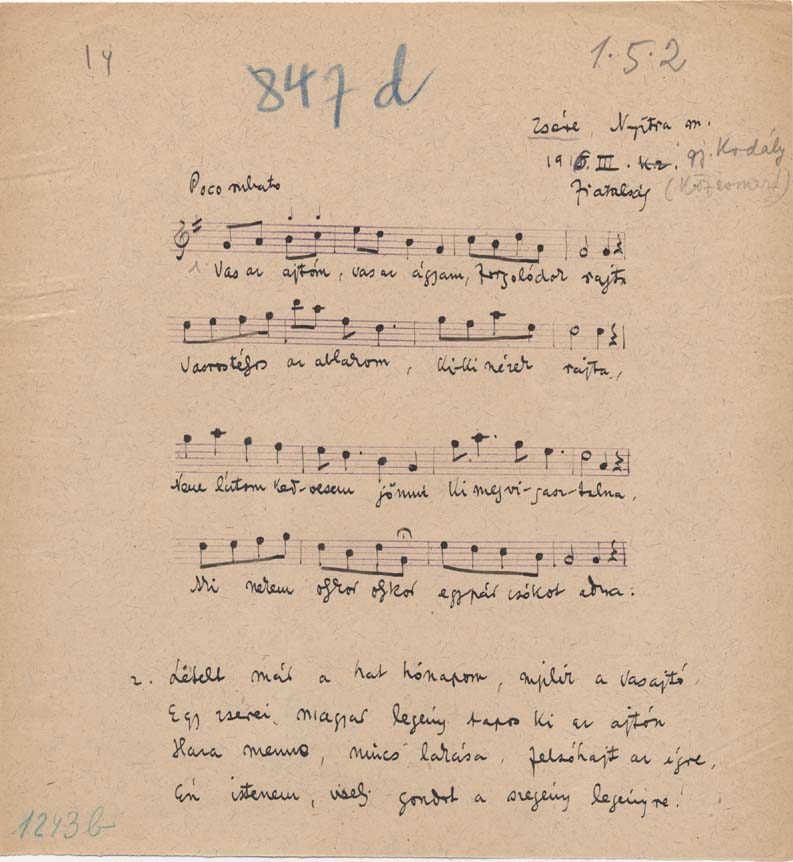 14
847 d
1.5.2
Zsére, Nyitra m.
gj. Kodály
Poco rubato
Fiatalság
1. Vas az ajtóm, vas az ágyam, forgolódok rajta
Vasrostélyos az ablakom, Ki-Ki nézek rajta,
Nem látom Ked-vesem jönni Ki megvi-gasz-talna,
Ki nekem olykor olykor egy pár csókot adna.
2. Letelt már a hat hónapom, nyílik a vasajtó
Egy zsérei magyar legény lapos ki az ajtón
Haza menne, nincs lakása, felsóhajt az égre,
Én istenem, viselj gondot a szegény legényre!
1243b